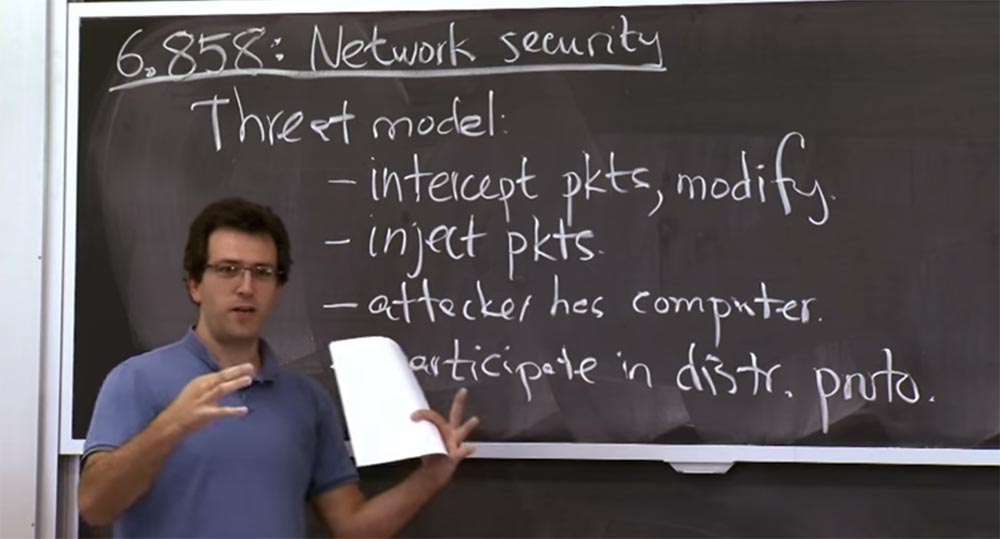 6.858: Network security
Threat model:
- intercept pkts, modify.
- inject pkts.
- attacker has computer.
- participate in distr. proto.